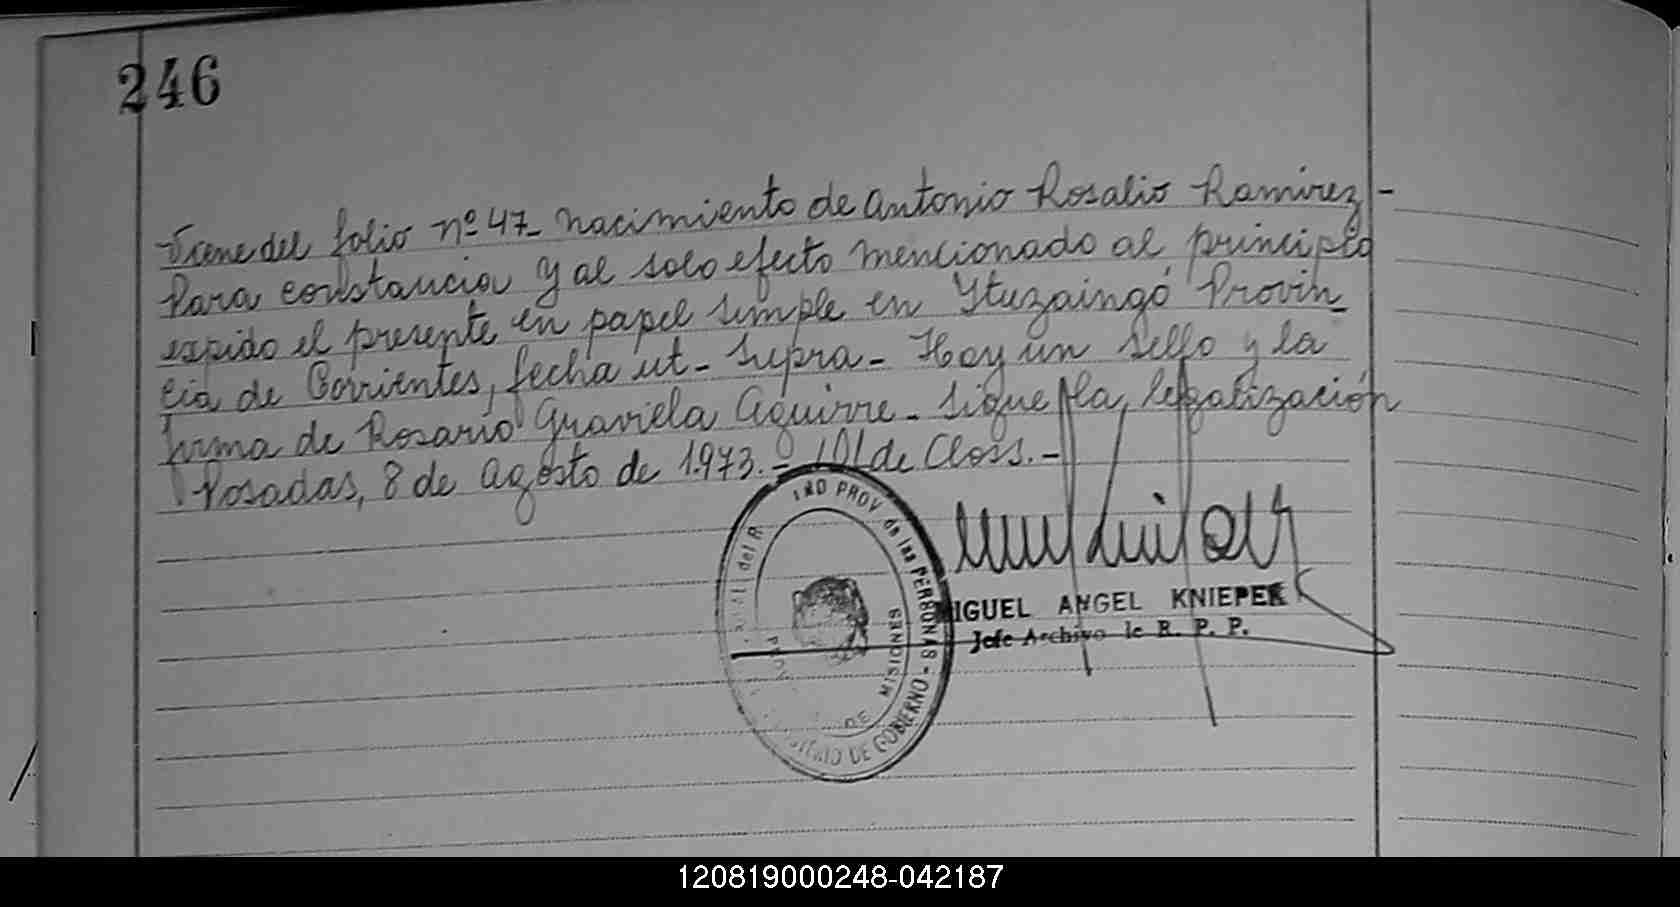 246
Viene del folio nº 47- nacimiento de Antonio Rosalio Ramirez-
Para constancia y al solo efecto mencionado al principio
expido el presente en papel simple en Ytuzaingó Provin_
cia de Corrientes, fecha ut- supra- Hay un sello y la
firma de Rosario Graviela Aguirre- sigue la legalización
Posadas, 8 de Agosto de 1.973.- de Closs.-
PROV. de las PERSONAS - DE GOBIERNO
del R
DE MISIONES
IGUEL ANGEL KNIEPER
Jefe Archivo R. P. P.
120819000248-042187